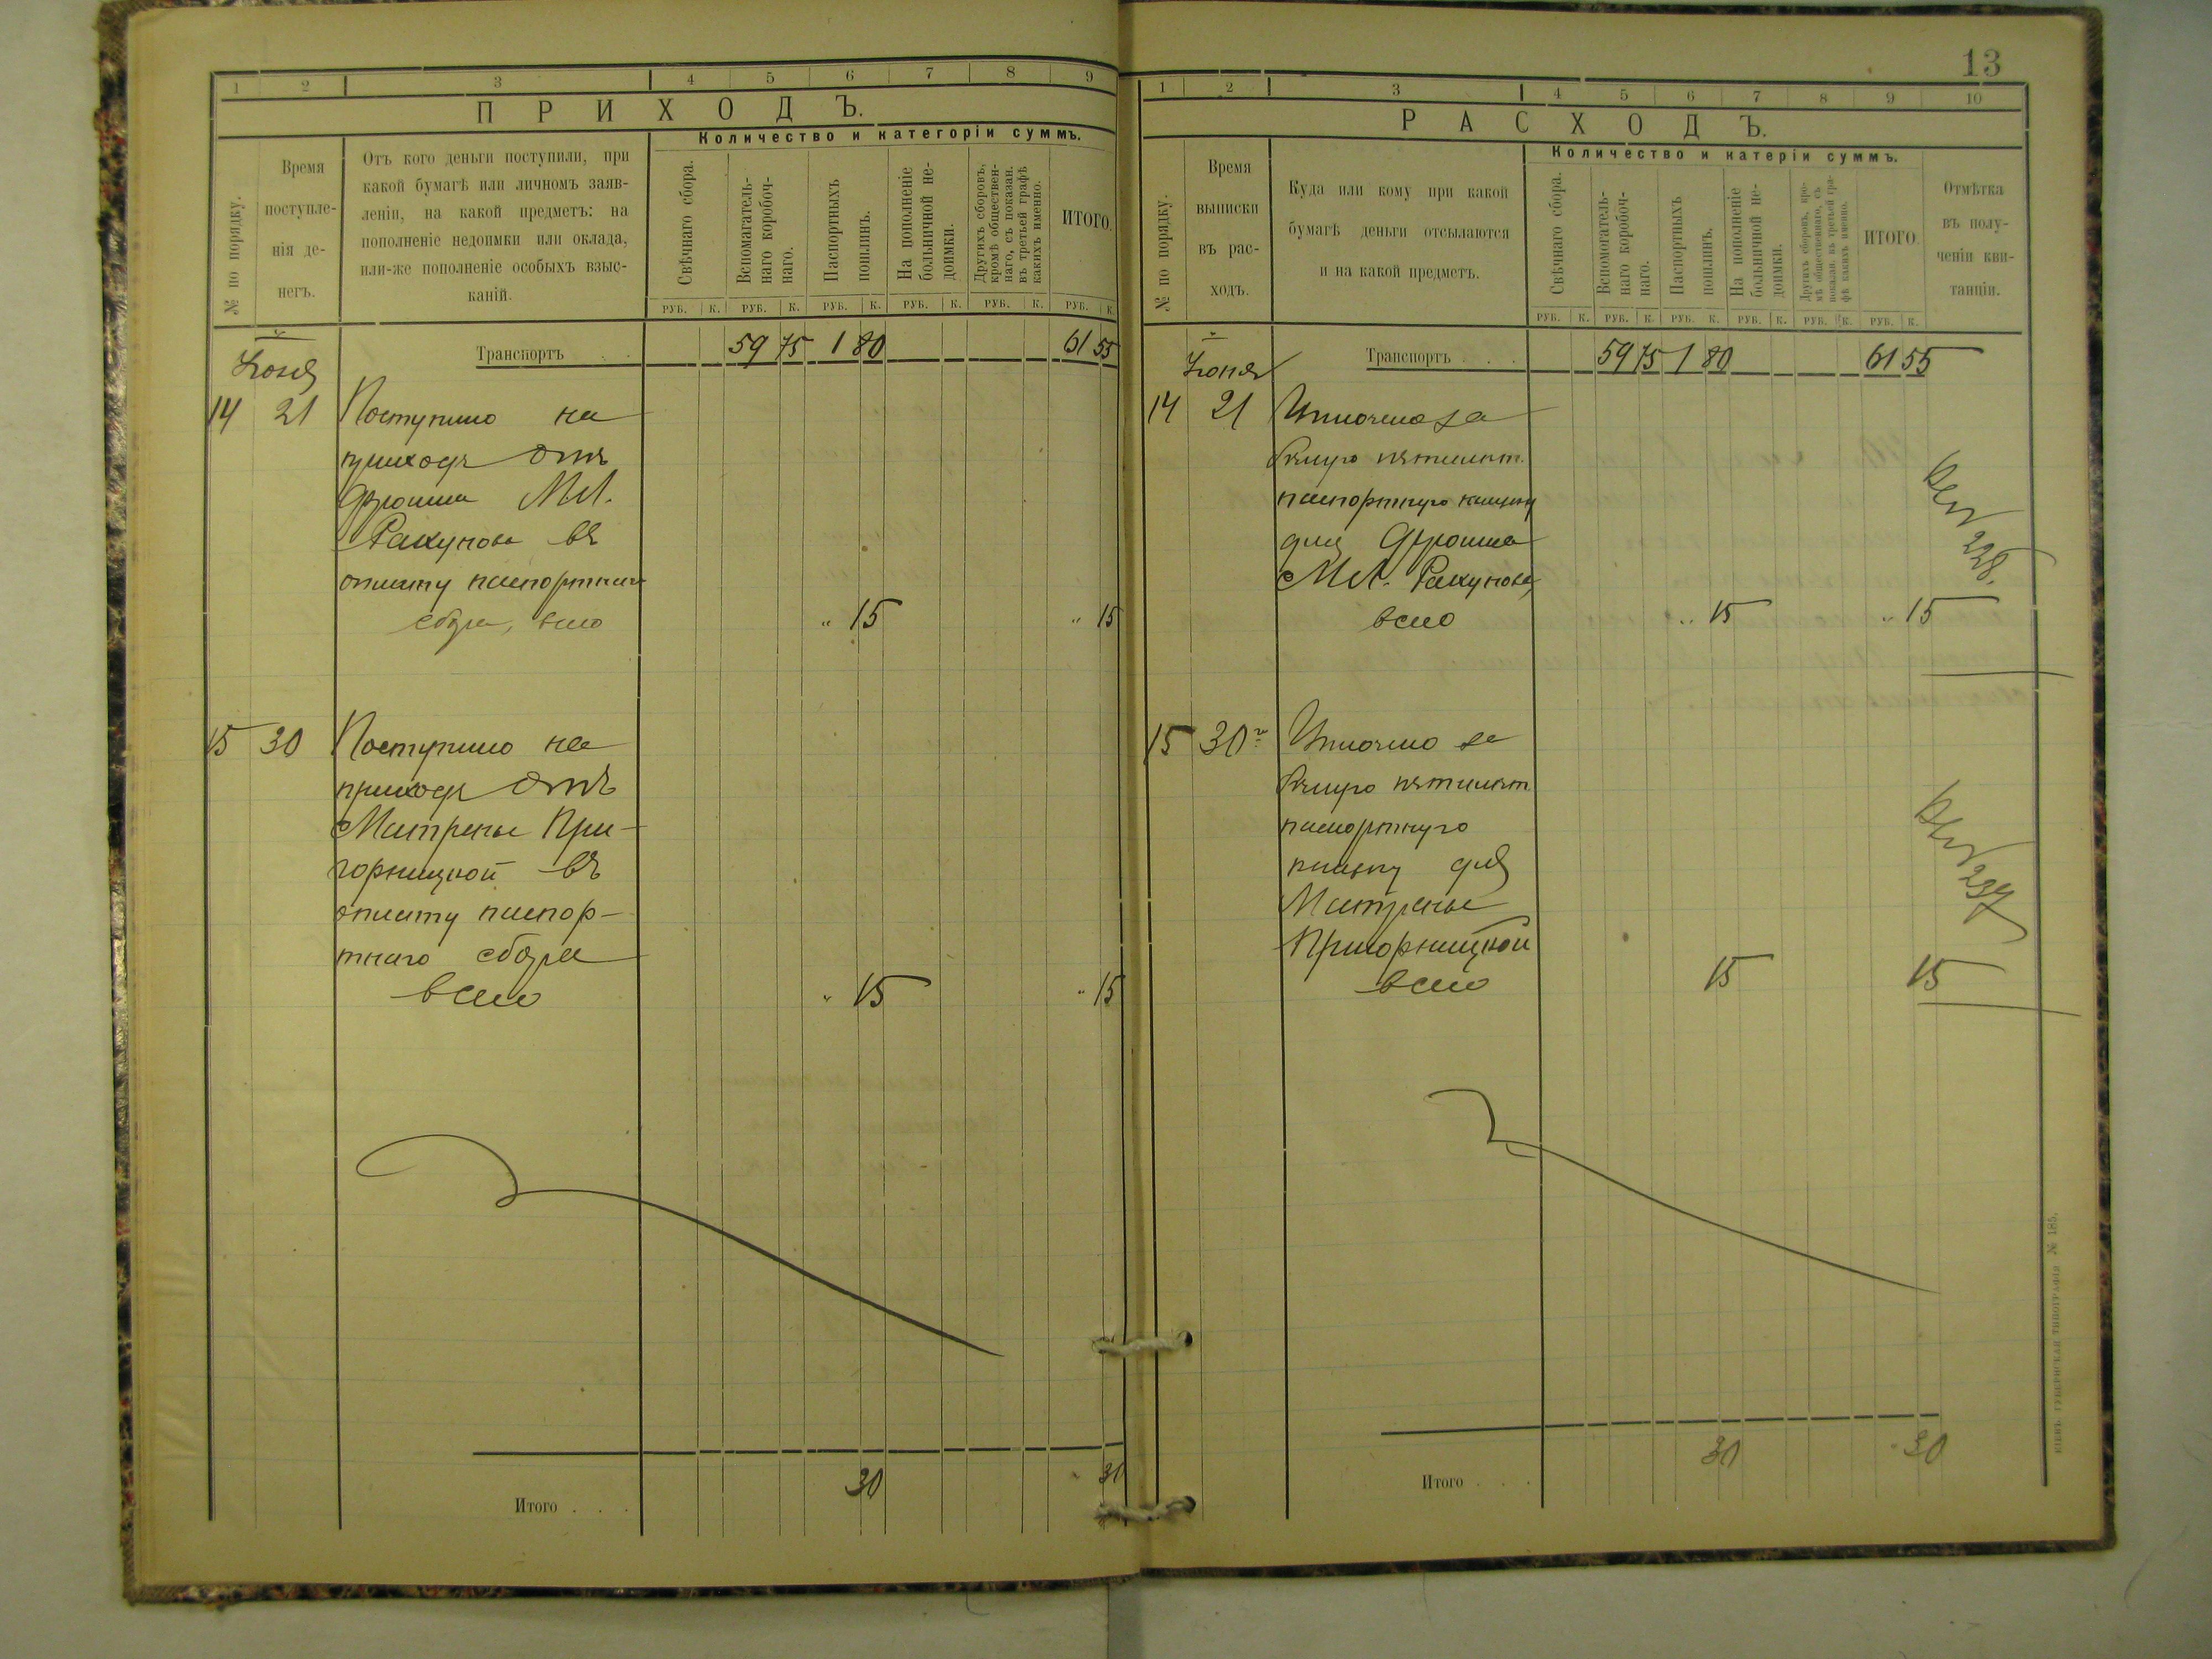 13
1 2 3 4 5 6 7 8 9
ПРИХОДЪ.
Количество и категоріи суммъ.
№ по порядку.
Время
поступле-
нія де-
негъ.
Отъ кого деньги поступили, при
какой бумагѣ или личномъ заяв-
леніи, на какой предметъ: на
пополненіе недоимки или оклада,
или-же пополненіе особыхъ взыс-
каній.
Свѣчнаго сбора.
Вспомагатель-
наго коробоч-
наго.
Паспортныхъ
пошлинъ.
На пополненіе
больничной не-
доимки.
Другихъ сборовъ,
кромѣ обществен-
наго, съ показан.
въ третьей графѣ
какихъ именно.
ИТОГО.
РУБ. К. РУБ. К. РУБ. К. РУБ. К. РУБ. К. РУБ. К.
Транспортъ . . 59 75 1 80 61 55
Іюня
14 21 Поступило на
приходъ отъ
М.
въ
оплату паспортнаго
сбора, всего " 15 " 15
15 30 Поступило на
приходъ отъ
Матрены При-
горницкой въ
оплату паспор-
тнаго сбора
всего " 15 " 15
Итого . . . 30 " 30
1 2 3 4 5 6 7 8 9 10
РАСХОДЪ.
Количество и катеріи суммъ.
№ по порядку.
Время
выписки
въ рас-
ходъ.
Куда или кому при какой
бумагѣ деньги отсылаются
и на какой предметъ.
Свѣчнаго сбора.
Вспомогатель-
наго коробоч-
наго.
Паспортныхъ
пошлинъ.
На пополненіе
больничной не-
доимки.
Другихъ сборовъ, кро-
мѣ общественнаго, съ
показан. въ третьей гра-
фѣ какихъ именно.
ИТОГО.
Отмѣтка
въ полу-
ченіи кви-
танціи.
РУБ. К. РУБ. К. РУБ. К. РУБ. К. РУБ. К. РУБ. К.
Транспортъ . . . 59 75 1 80 61 55
Іюня
14 21 Уплочено за
пятилѣт.
паспортную книжку
для
М.
всего " 15 " 15
№ 228.
15 30 Уплочено за
пятилѣт
паспортную
книжку для
Матрены
Пригорницкой
всего 15 15
№ 237
Итого . . . 30 " 30
КІЕВЪ. ГУБЕРНСКАЯ ТИПОГРАФІЯ № 185.